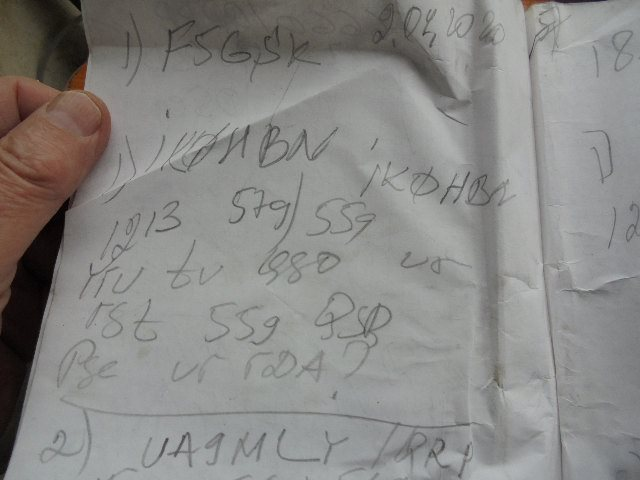 1) F5GSK 2.04.2020
1) iKØHBN
iKØHBN
1213 579/559
tu ur
rst 559 QSD
Pse ur rDA?
2) UA9MLY /QRP
18
1)
12